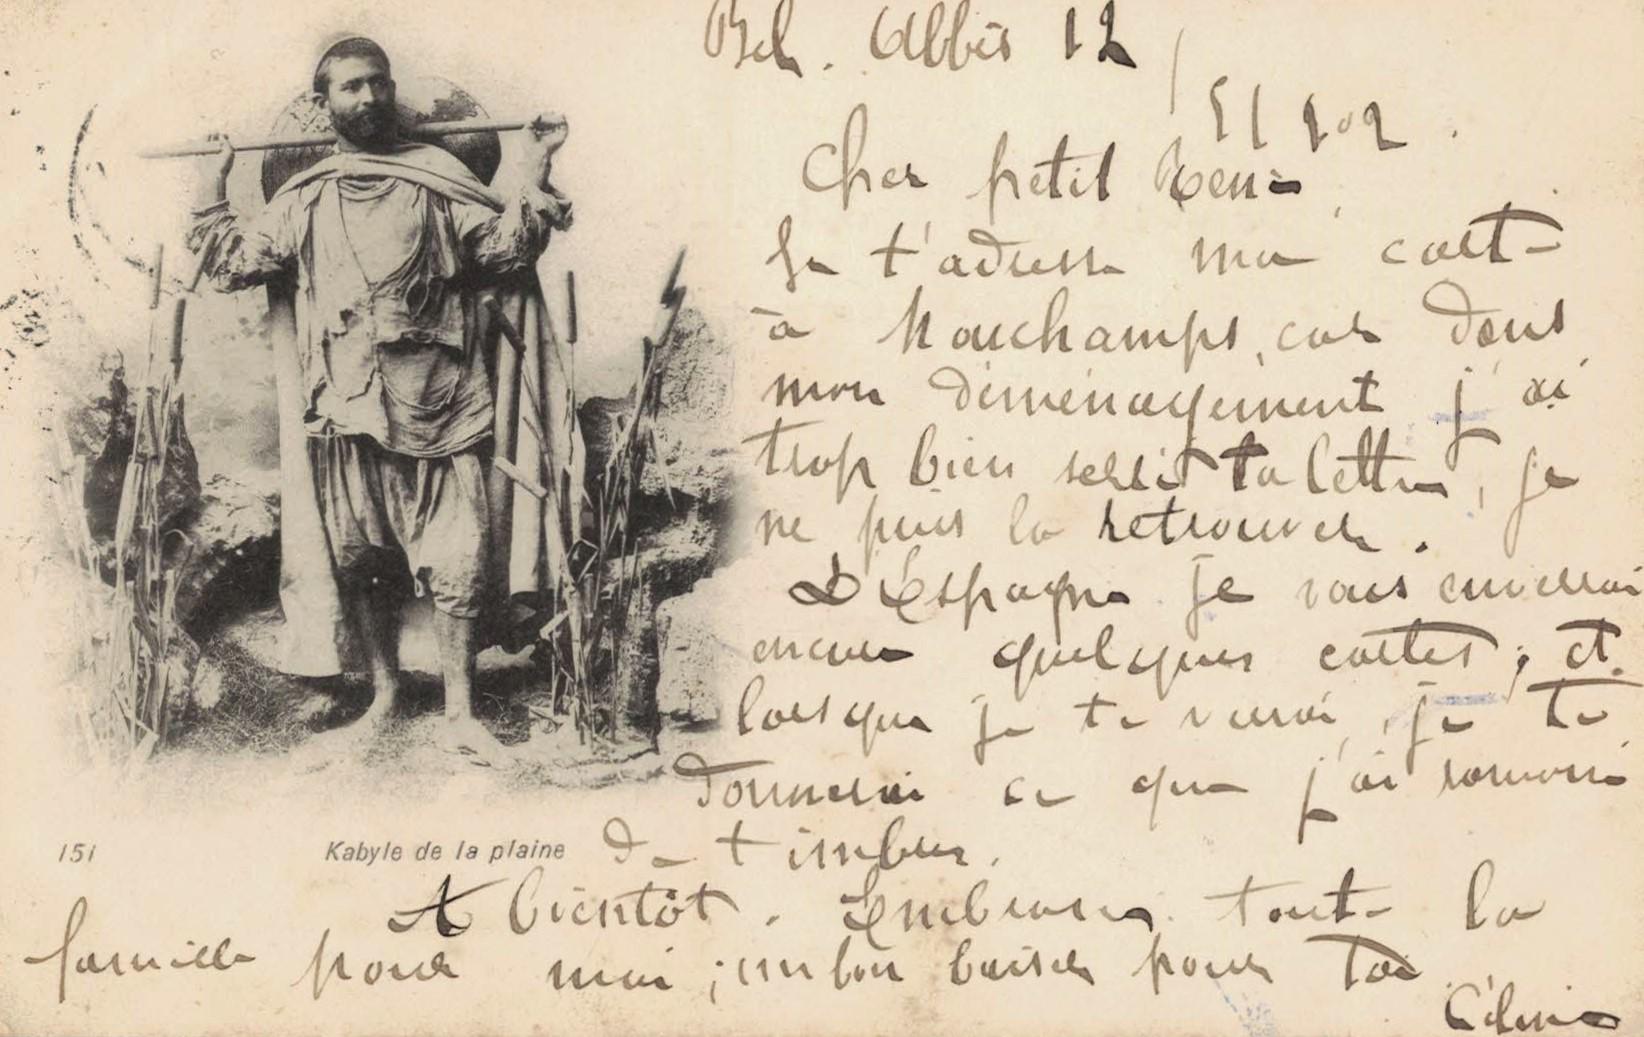 Bel. Abbès 12
51 902.
Cher petit
Je t'adresse ma carte
à Mouchamps, car dans
mon déménagement j'ai
trop bien serré ta lettre, je
ne puis la retrouver.
D'Espagne je vous enverrai
encore quelques cartes; et
lorsque je te verrai, je te
donnerai ce que j'ai ramassé
151 Kabyle de la plaine
de timbres.
A bientôt. Embrasse toute la
famille pour moi; un bon baiser pour toi